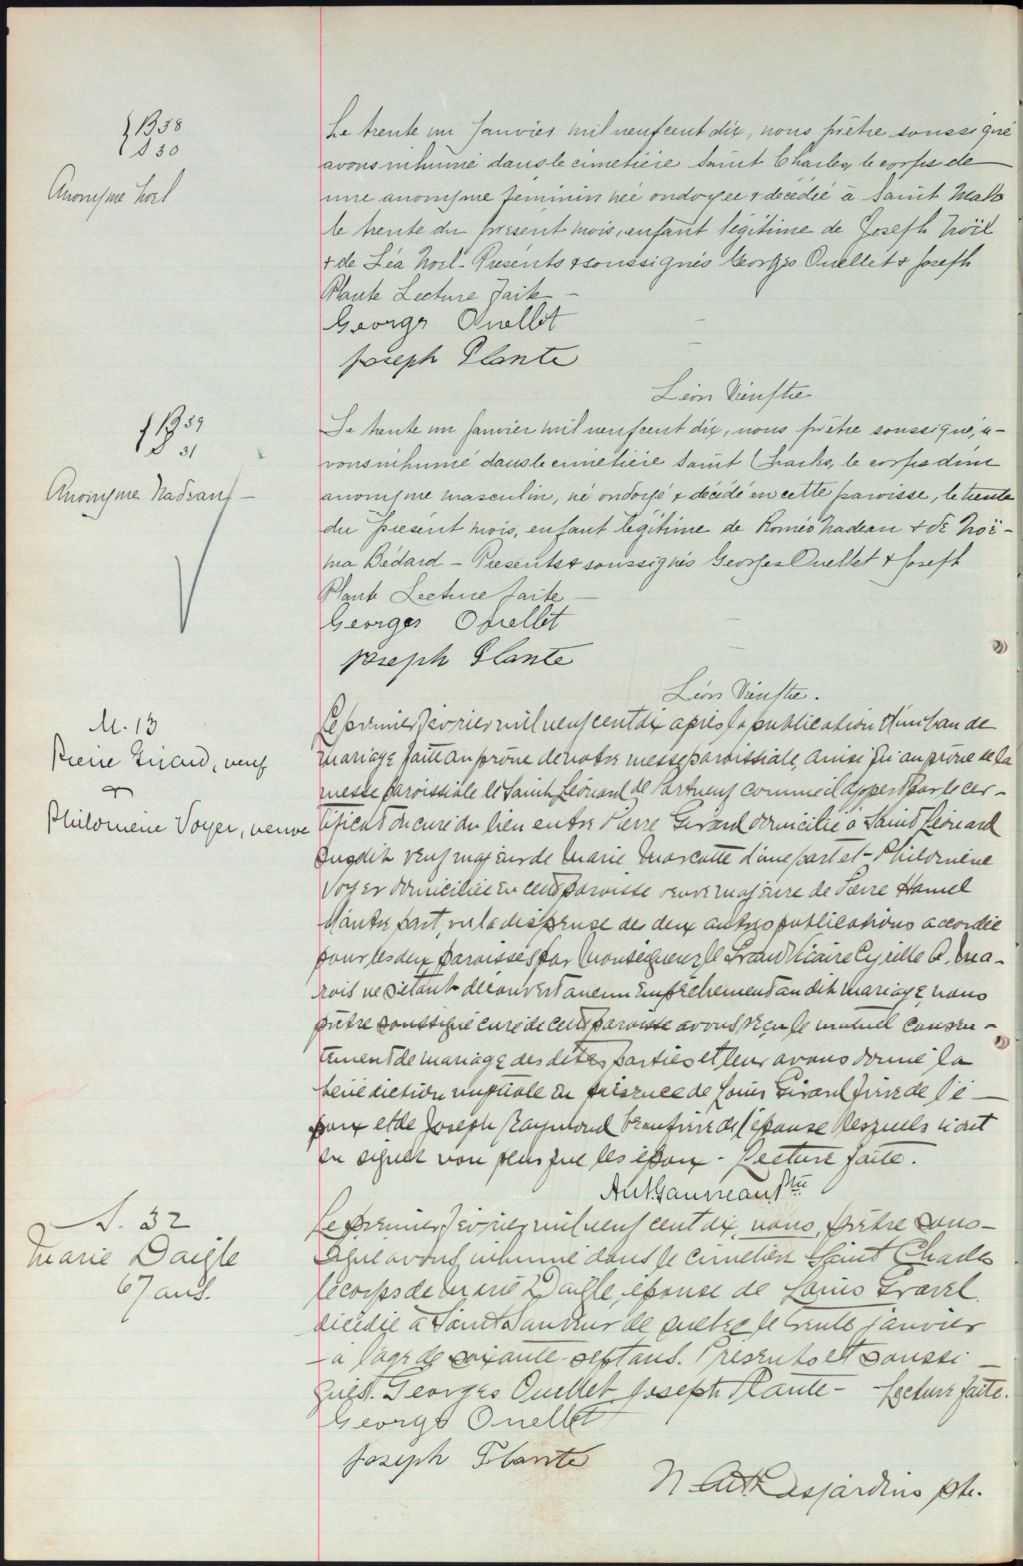 B 38
S 30
Anonyme Noel
Le trente un Janvier mil neuf cent dix, nous prêtre soussigné
avons inhumé dans le cimetière Saint Charles le corps de
une anonyme feminin née ondoyée & décédée à Saint Malo
le trente du présent mois, enfant légitime de Joseph Noël
& de Léa Noel - Présents & soussignés Georges Ouellet & Joseph
Plante Lecture faite -
Georges Ouellet
Joseph Plante
Léon
B 39
S 31
Anonyme Nadeau -
Le trente un Janvier mil neuf cent dix, nous prêtre soussigné, a-
vons inhumé dans le cimetière Saint Charles, le corps d'un
anonyme masculin, né ondoyé & décédé en cette paroisse, le trente
du présent mois, enfant légitime de Roméo Nadeau & de Noë-
ma Bédard - Présents & soussignés Georges Ouellet & Joseph
Plante Lecture faite -
Georges Ouellet
Joseph Plante
Léon
M. 13
Pierre Girard, veuf
&
Philomène Voyer, veuve
Le premier février mil neuf cent dix après la publication d'un ban de
mariage faite au prône de notre messe paroissiale, ainsi qu'au prône de la
messe paroissiale de Saint Léonard de Portneuf comme il appert par le cer-
tificat du curé du lieu entre Pierre Girard domicilié à Saint Léonard
susdit veuf majeur de Marie Marcotte d'une part et - Philomène
Voyer domiciliée en cette paroisse veuve majeure de Pierre Hamel
d'autre part, vu la dispense des deux autres publications accordée
pour les deux paroisses par Monseigneur le Grand Vicaire Cyrille A. Ma-
rois ne s'étant découvert aucun empêchement au dit mariage, nous
prêtre soussigné curé de cette paroisse avons reçu le mutuel consen-
tement de mariage des dites parties et leur avons donné la
bénédiction nuptiale en présence de Louis Girard frère de l'é-
poux et de Joseph Raymond beau frère de l'épouse lesquels n'ont
su signer non plus que les époux - Lecture faite.
Ant Gauvreau, Ptre
S. 32
Marie Daigle
67 ans.
Le premier février mil neuf cent dix, nous, prêtre sous-
signé avons inhumé dans le cimetière Saint Charles
le corps de Marie Daigle, épouse de Louis Gravel
décédée à Saint Sauveur de Québec le trente janvier
- à l'age de soixante-sept ans. Présents et soussi-
gnés. Georges Ouellet Joseph Plante - Lecture faite.
Georges Ouellet
Joseph Plante
Desjardins ptr.